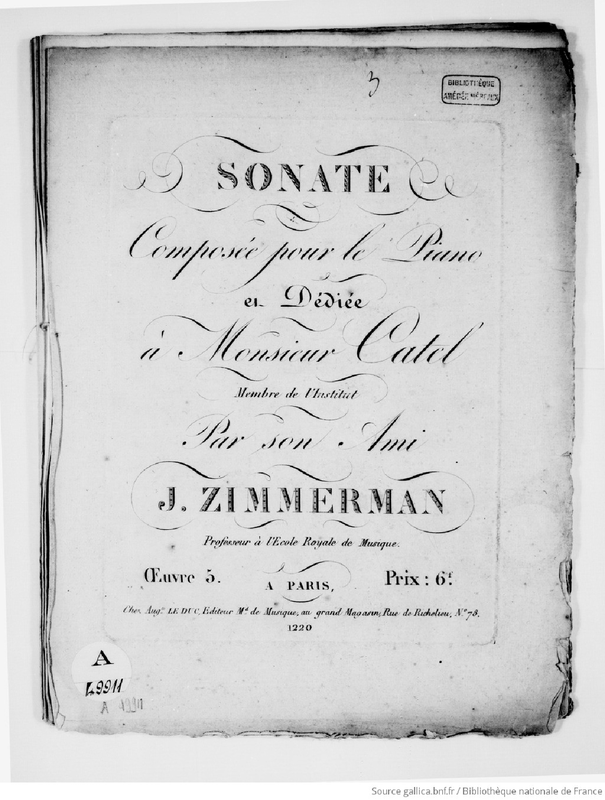 3
BIBLIOTHÈQUE
AMÉDÉE MÉREAUX
SONATE
Composée pour le Piano
et Dédiée
à Monsieur Catel
Membre de l'Institut
Par son Ami
J. ZIMMERMAN
Professeur à l'Ecole Royale de Musique.
Œuvre 5. A PARIS, Prix: 6f
Chez Augte. LE DUC, Editeur Md. de Musique, au grand Magasin, Rue de Richelieu, No. 78.
1220
A
49911
Source gallica.bnf.fr / Bibliothèque nationale de France